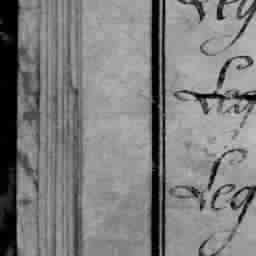 Leg
Leg
Leg